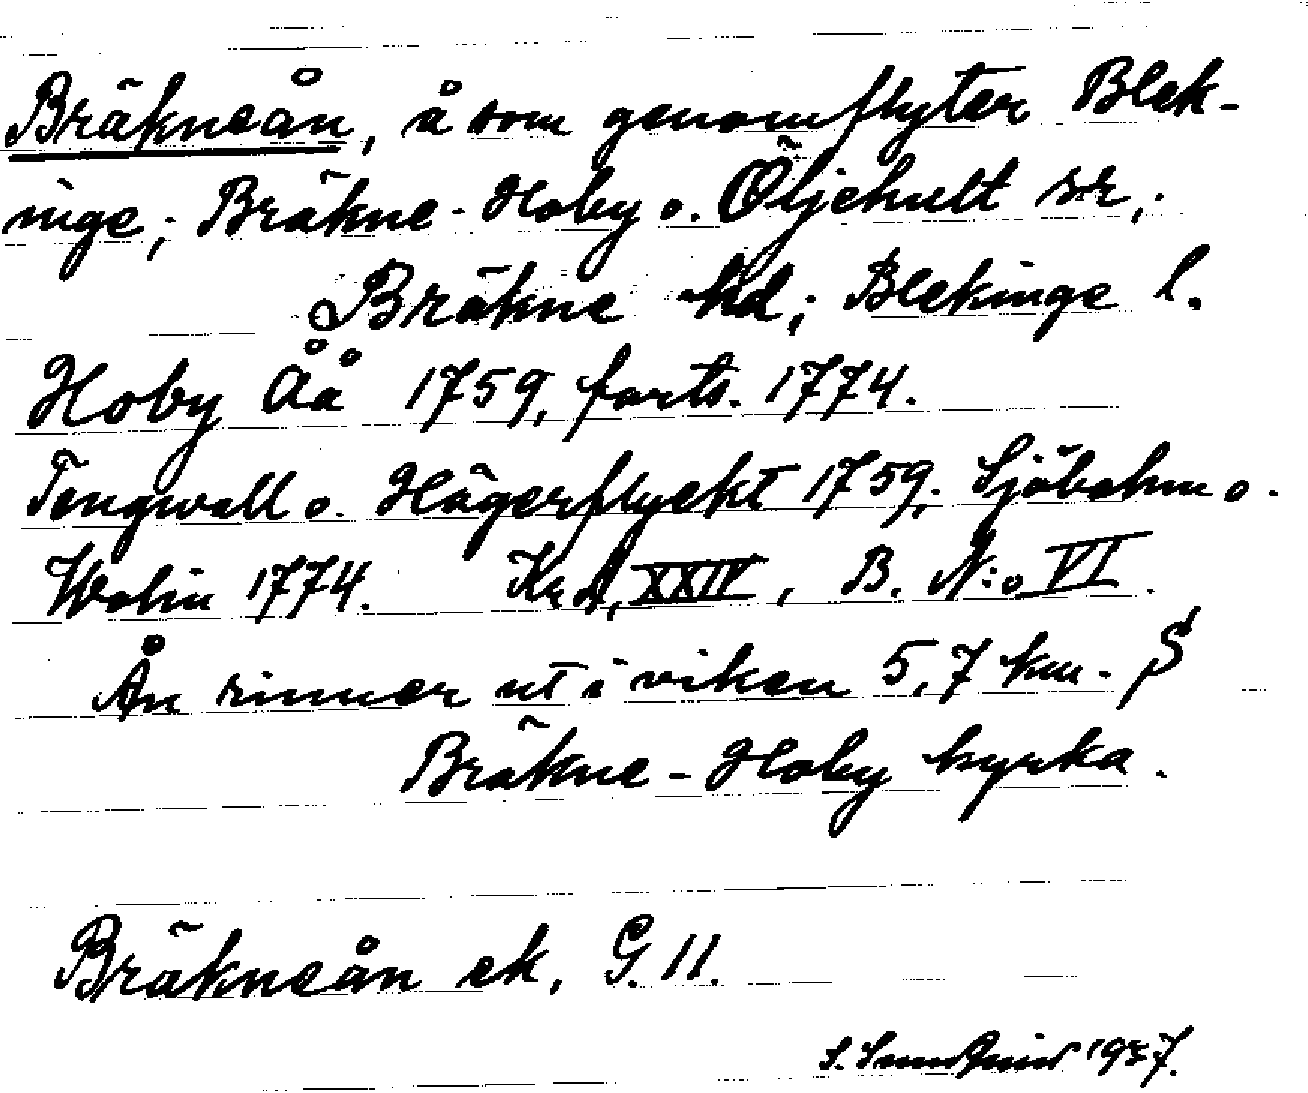 Bräkneån, å som genomflyter Blek-
inge; Bräkne-Hoby o. Öljehult sr,.
Bräkne hd; Blekinge l.
Hoby Åå 1759, forts. 1774.
Tengwall o. Hägerflyckt 1759; Sjöbohm o.
Wohin 1774. XXIV, B. N:o VI.
Ån rinner ut i viken 5,7 km. S
Bräkne-Hoby kyrka.
Bräkneån ek, G. 11.
S. 1937.